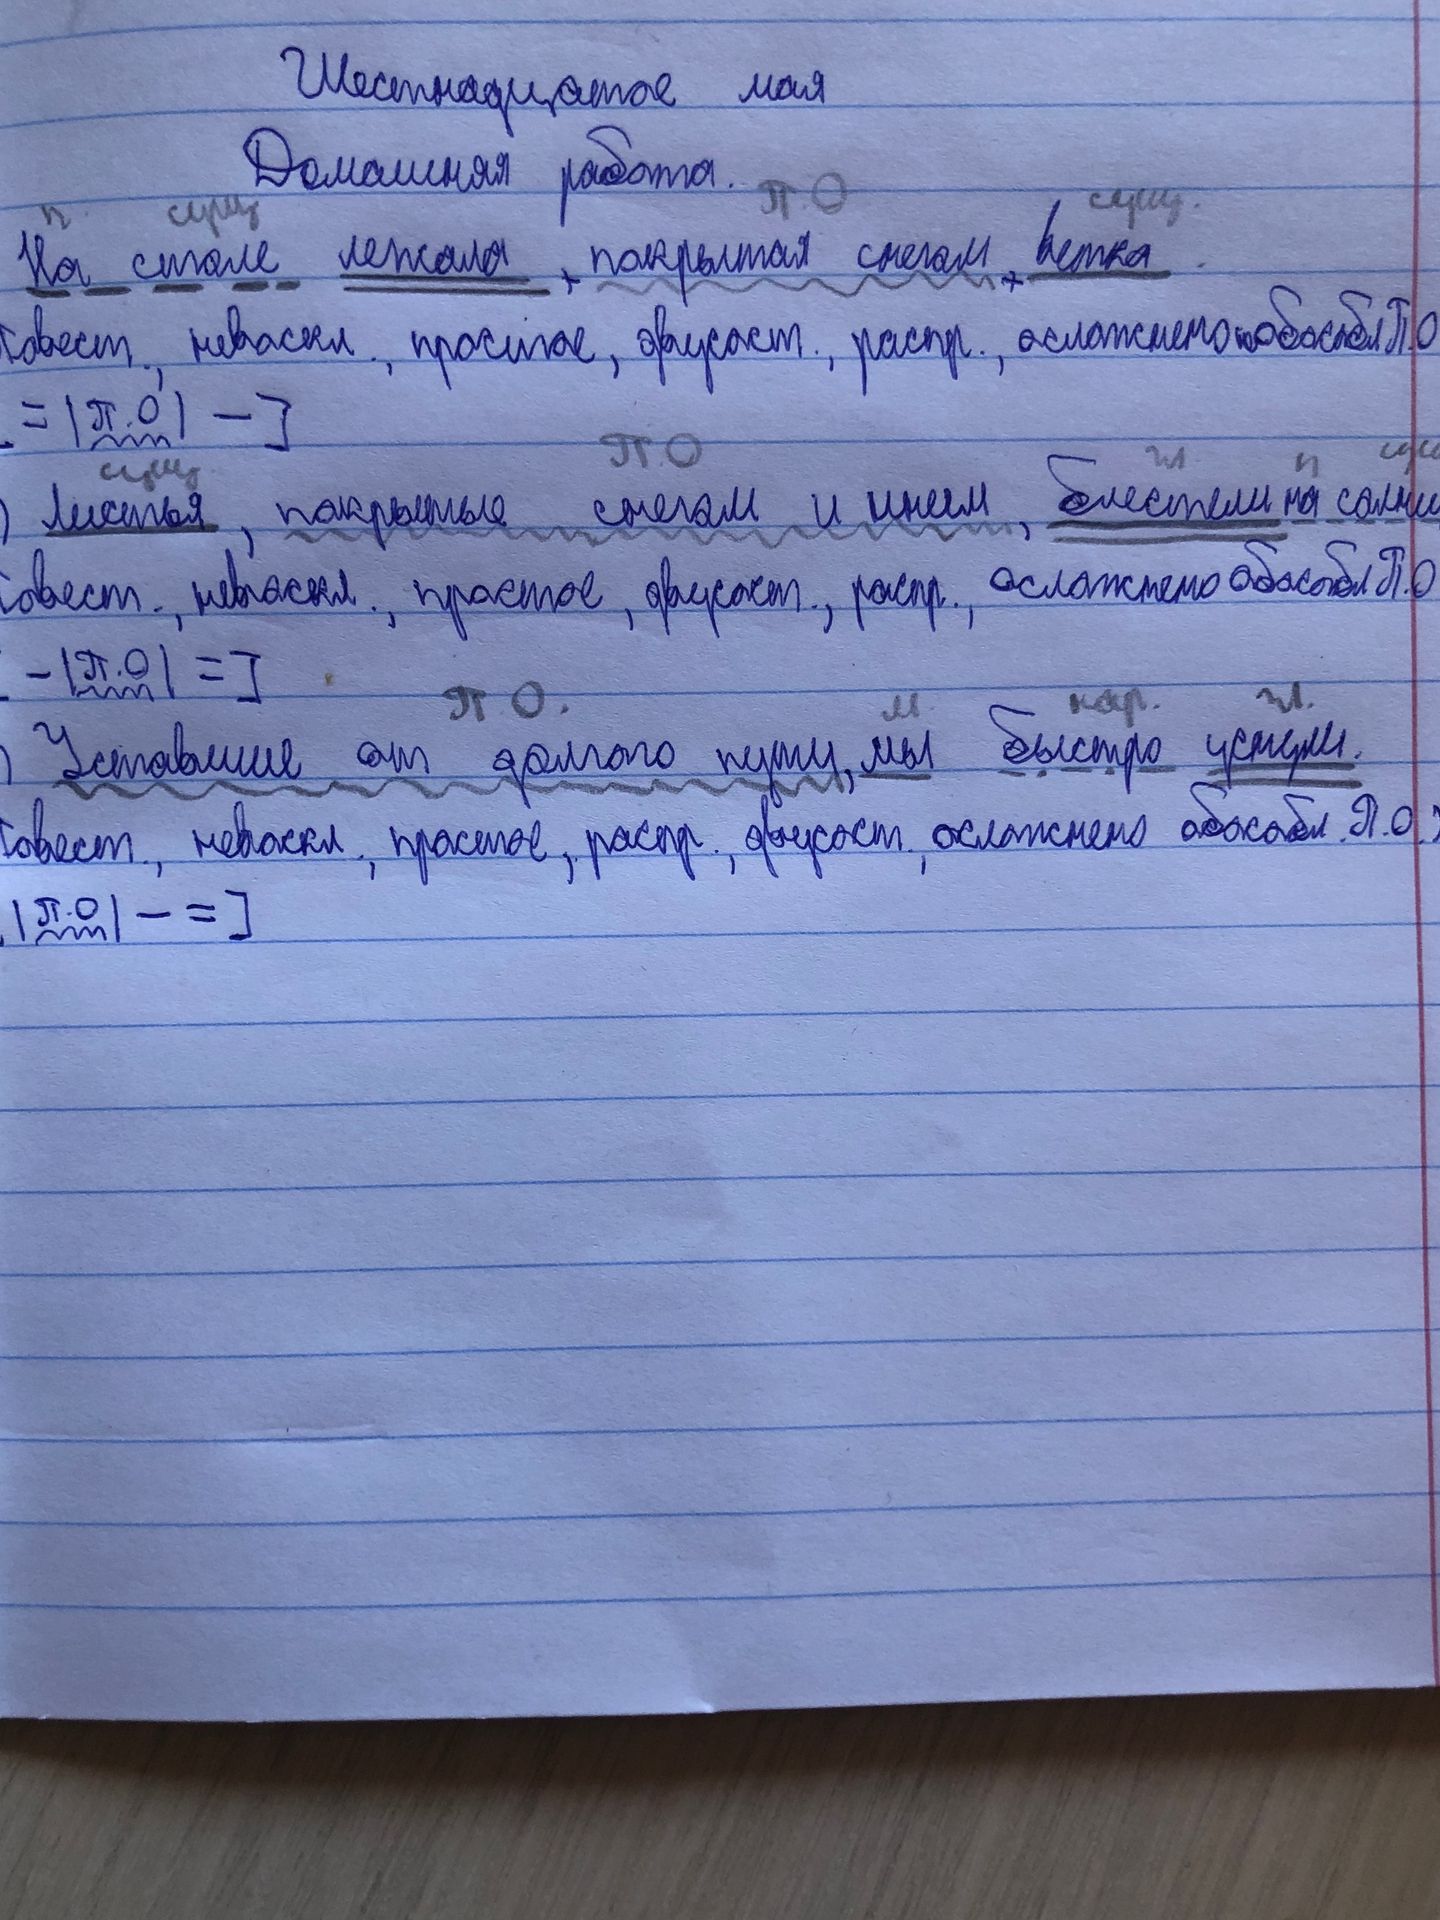 Шестнадцатое мая
Домашняя работа.
п. сущ П.О сущ.
На столе лежала, покрытая снегом, ветка.
Повест., невоскл., простое, двусост., распр., осложнено обособл П.О
[= |П.О| –]
сущ. П.О гл. п сущ
) Листья, покрытые снегом и инеем, блестели на солнце
Повест., невоскл., простое, двусост., распр., осложнено обособл П.О
[ – |П.О| =]
П.О. м. нар. гл.
) Уставшие от долгого пути, мы быстро уснули.
Повест., невоскл., простое, распр., двусост., осложнено обособл. П.О.
[ |П.О| – =]